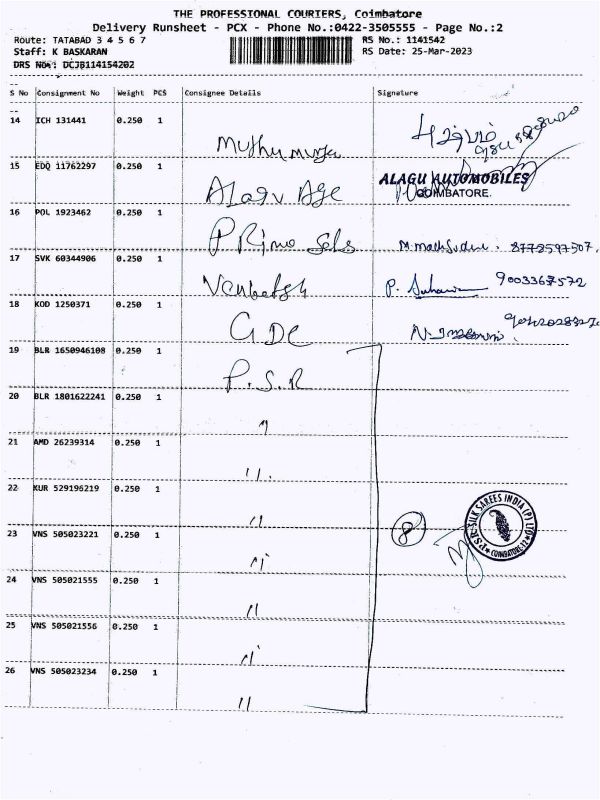 THE PROFESSIONAL COURIERS, Coimbatore
Delivery Runsheet - PCX - Phone No.:0422-3505555 - Page No.:2
Route: TATABAD 3 4 5 6 7
RS No.: 1141542
Staff: K BASKARAN
RS Date: 25-Mar-2023
DRS No.: DCJB114154202
S No Consignment No Weight PCS Consignee Details Signature
14 ICH 131441 0.250 1
Muthu
15 EDQ 11762297 0.250 1
Alagu Age
ALAGU AUTOMOBILES
COIMBATORE.
16 POL 1923462 0.250 1
PRimo Sols
8778597507,
17 SVK 60344906 0.250 1
Venbatsh P. 9003367572
18 KOD 1250371 0.250 1
GDC
19 BLR 1650946108 0.250 1
P.S.R
20 BLR 1801622241 0.250 1
"
21 AMD 26239314 0.250 1
11.
22 KUR 529196219 0.250 1
11
23 VNS 505023221 0.250 1
11
8
P.S.R. SILK SAREES INDIA (P) LTD
COIMBATORE-12
24 VNS 505021555 0.250 1
11
25 VNS 505021556 0.250 1
11
26 VNS 505023234 0.250 1
11